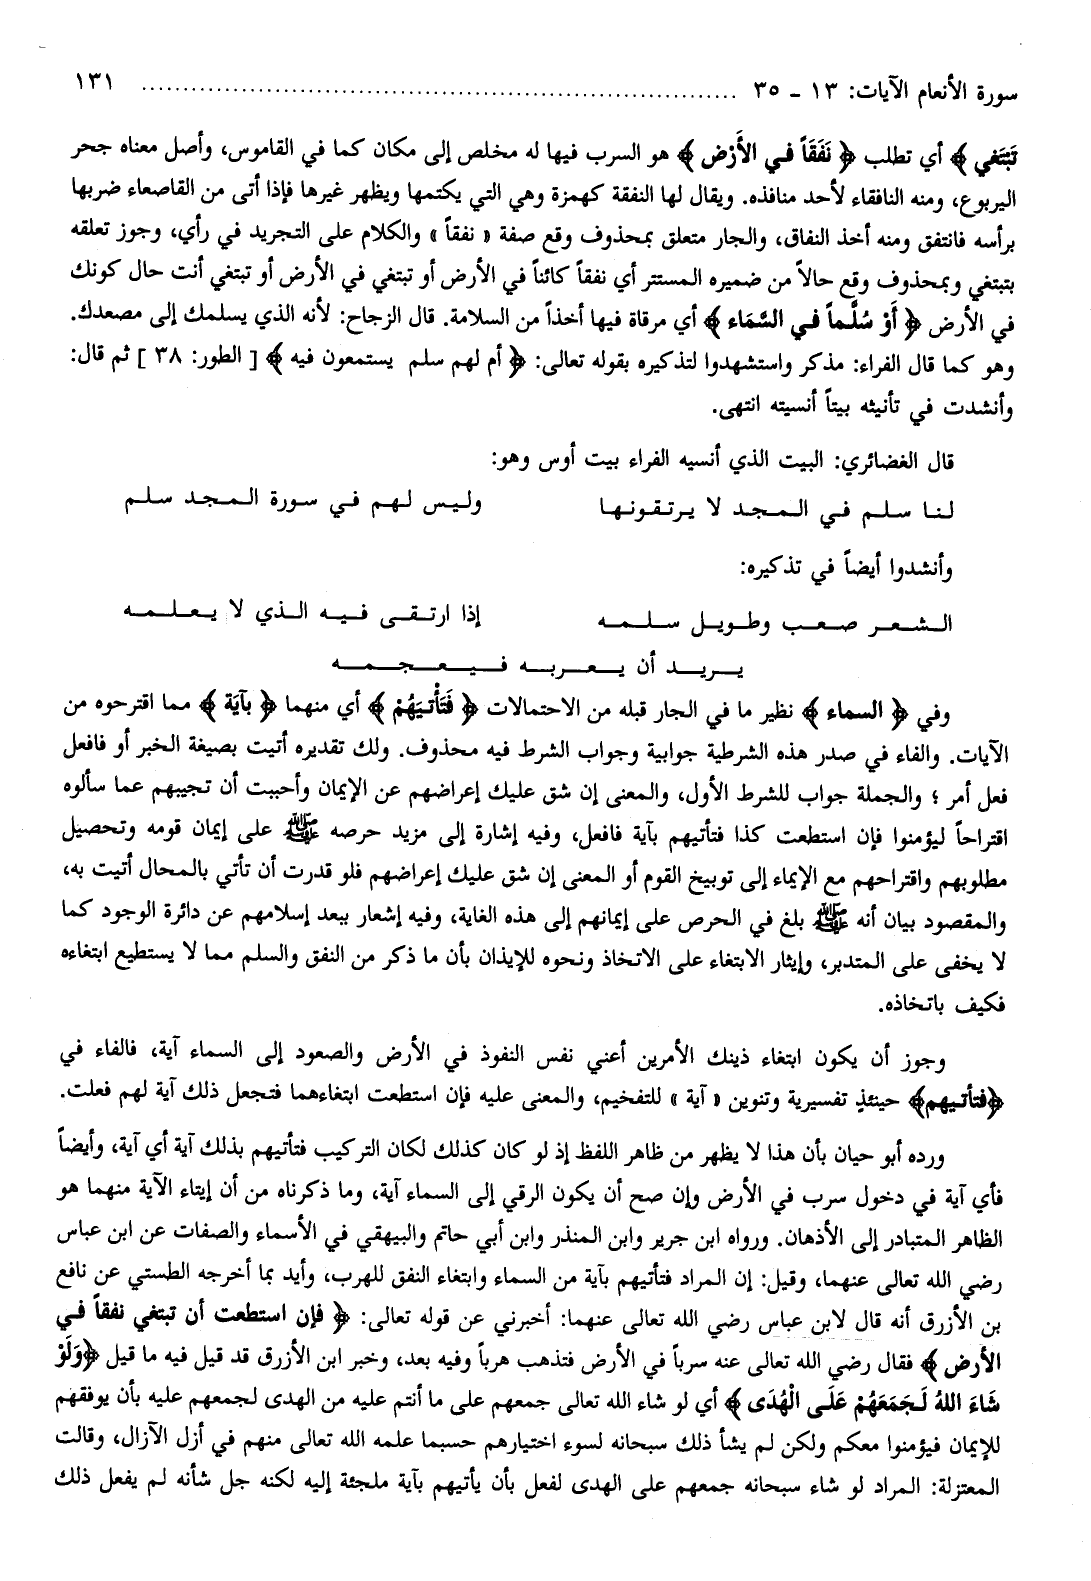 سورة الأنعام الآيات: ١٣ ـ ٣٥ ........................................................................ ١٣١
تَبْتَغِي ﴾ أي تطلب ﴿ نَفَقَاً فِي الأَرْضِ ﴾ هو السرب فيها له مخلص إلى مكان كما في القاموس، وأصل معناه جحر
اليربوع، ومنه النافقاء لأحد منافذه. ويقال لها النفقة كهمزة وهي التي يكتمها ويظهر غيرها فإذا أتى من القاصعاء ضربها
برأسه فانتفق ومنه أخذ النفاق، والجار متعلق بمحذوف وقع صفة « نفقاً » والكلام على التجريد في رأي، وجوز تعلقه
بتبتغي وبمحذوف وقع حالاً من ضميره المستتر أي نفقاً كائناً في الأرض أو تبتغي في الأرض أو تبتغي أنت حال كونك
في الأرض ﴿ أَوْ سُلَّماً في السَّمَاء ﴾ أي مرقاة فيها أخذاً من السلامة. قال الزجاج: لأنه الذي يسلمك إلى مصعدك.
وهو كما قال الفراء: مذكر واستشهدوا لتذكيره بقوله تعالى: ﴿ أم لهم سلم يستمعون فيه ﴾ [ الطور: ٣٨ ] ثم قال:
وأنشدت في تأنيثه بيتاً أنسيته انتهى.
قال الغضائري: البيت الذي أنسيه الفراء بيت أوس وهو:
لنا سلم في المجد لا يرتقونها وليس لهم في سورة المجد سلم
وأنشدوا أيضاً في تذكيره:
الشعر صعب وطويل سلمه إذا ارتقى فيه الذي لا يعلمه
يريد أن يعربه فيعجمه
وفي ﴿ السماء ﴾ نظير ما في الجار قبله من الاحتمالات ﴿ فَتَأْتِيَهُمْ ﴾ أي منهما ﴿ بآيَة ﴾ مما اقترحوه من
الآيات. والفاء في صدر هذه الشرطية جوابية وجواب الشرط فيه محذوف. ولك تقديره أتيت بصيغة الخبر أو فافعل
فعل أمر ؛ والجملة جواب للشرط الأول، والمعنى إن شق عليك إعراضهم عن الإيمان وأحببت أن تجيبهم عما سألوه
اقتراحاً ليؤمنوا فإن استطعت كذا فتأتيهم بآية فافعل، وفيه إشارة إلى مزيد حرصه ﷺ على إيمان قومه وتحصيل
مطلوبهم واقتراحهم مع الإيماء إلى توبيخ القوم أو المعنى إن شق عليك إعراضهم فلو قدرت أن تأتي بالمحال أتيت به،
والمقصود بيان أنه ﷺ بلغ في الحرص على إيمانهم إلى هذه الغاية، وفيه إشعار ببعد إسلامهم عن دائرة الوجود كما
لا يخفى على المتدبر، وإيثار الابتغاء على الاتخاذ ونحوه للإيذان بأن ما ذكر من النفق والسلم مما لا يستطيع ابتغاءه
فكيف باتخاذه.
وجوز أن يكون ابتغاء ذينك الأمرين أعني نفس النفوذ في الأرض والصعود إلى السماء آية، فالفاء في
﴿فتأتيهم﴾ حينئذٍ تفسيرية وتنوين « آية » للتفخيم، والمعنى عليه فإن استطعت ابتغاءهما فتجعل ذلك آية لهم فعلت.
ورده أبو حيان بأن هذا لا يظهر من ظاهر اللفظ إذ لو كان كذلك لكان التركيب فتأتيهم بذلك آية أي آية، وأيضاً
فأي آية في دخول سرب في الأرض وإن صح أن يكون الرقي إلى السماء آية، وما ذكرناه من أن إيتاء الآية منهما هو
الظاهر المتبادر إلى الأذهان. ورواه ابن جرير وابن المنذر وابن أبي حاتم والبيهقي في الأسماء والصفات عن ابن عباس
رضي الله تعالى عنهما، وقيل: إن المراد فتأتيهم بآية من السماء وابتغاء النفق للهرب، وأيد بما أخرجه الطستي عن نافع
بن الأزرق أنه قال لابن عباس رضي الله تعالى عنهما: أخبرني عن قوله تعالى: ﴿ فإن استطعت أن تبتغي نفقاً في
الأرض ﴾ فقال رضي الله تعالى عنه سرباً في الأرض فتذهب هرباً وفيه بعد، وخبر ابن الأزرق قد قيل فيه ما قيل ﴿وَلَوْ
شَاءَ اللهُ لَجَمَعَهُمْ عَلَى الْهُدَى ﴾ أي لو شاء الله تعالى جمعهم على ما أنتم عليه من الهدى لجمعهم عليه بأن يوفقهم
للإيمان فيؤمنوا معكم ولكن لم يشأ ذلك سبحانه لسوء اختيارهم حسبما علمه الله تعالى منهم في أزل الآزال، وقالت
المعتزلة: المراد لو شاء سبحانه جمعهم على الهدى لفعل بأن يأتيهم بآية ملجئة إليه لكنه جل شأنه لم يفعل ذلك